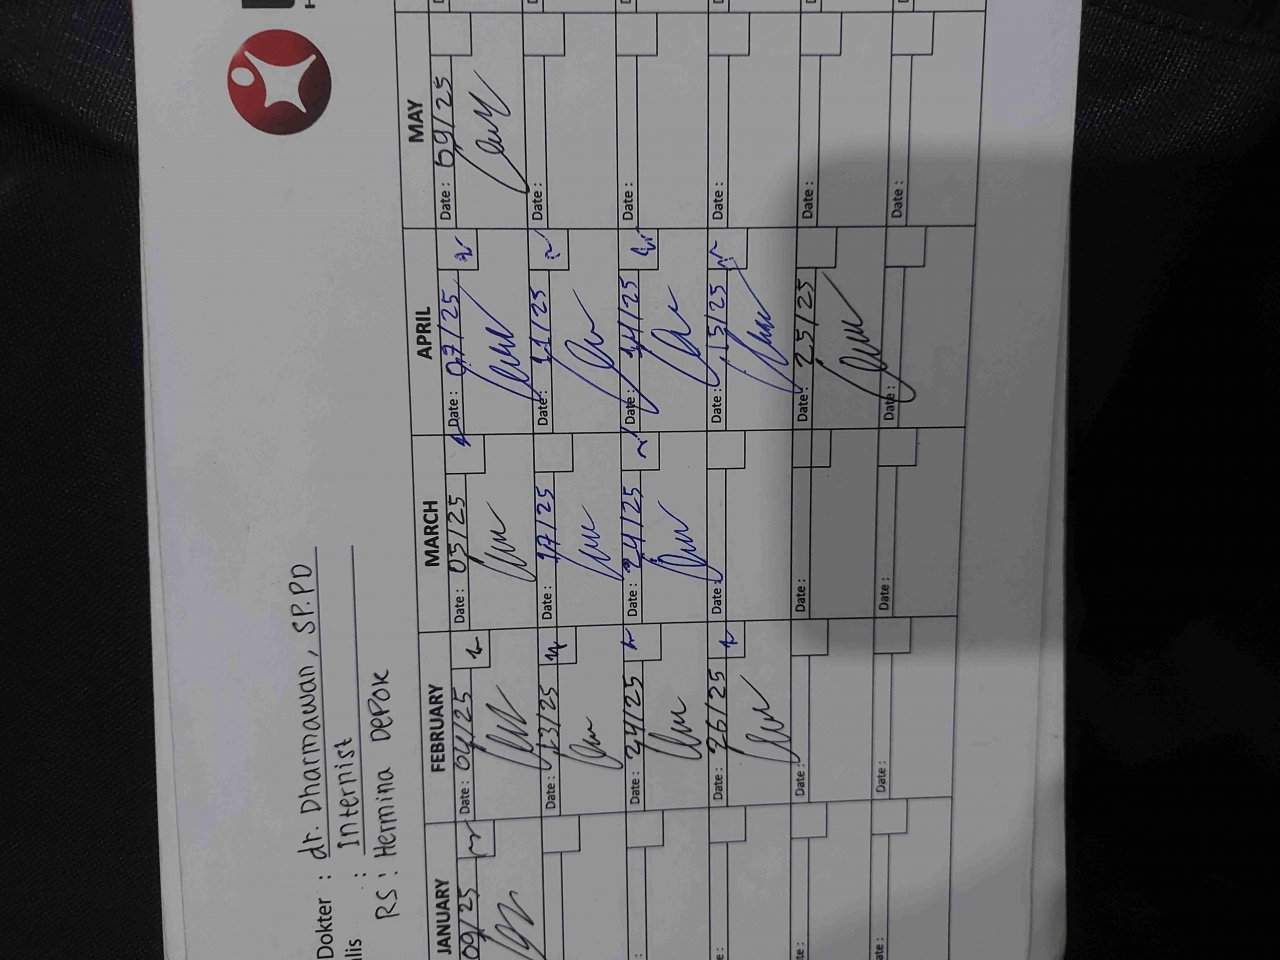 Dokter : dr. Dharmawan, SP.PD
alis : Internist
RS : Hermina DEPOK
JANUARY FEBRUARY MARCH APRIL MAY
09/25 Date : 04/25 Date : 05/25 Date : 07/25 Date : 09/25
Date : 13/25 Date : 17/25 Date : 11/25 Date :
Date : 24/25 Date : 24/25 Date : 14/25 Date :
Date : 26/25 Date : Date : 15/25 Date :
Date : Date : Date : 25/25 Date :
Date : Date : Date : Date : Date :